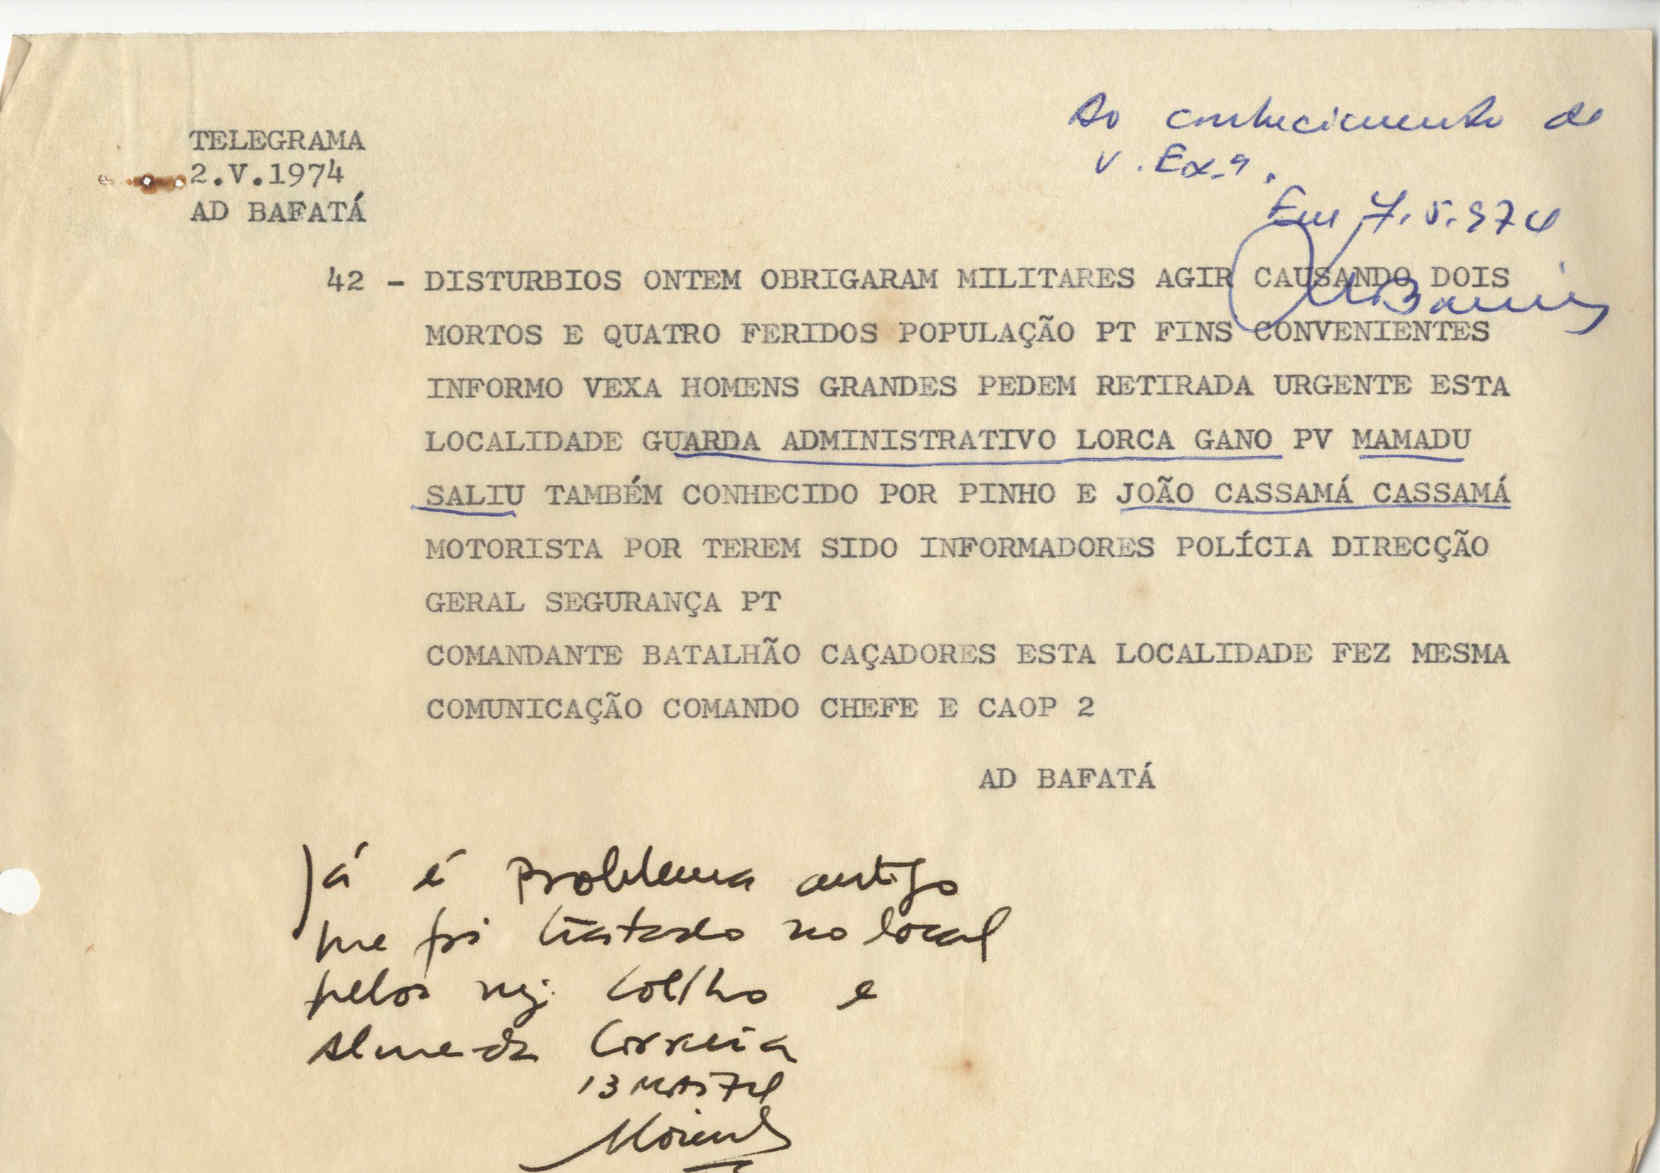 Ao conhecimento de
V. Ex.ª.
Em 7.5.974
TELEGRAMA
2.V.1974
AD BAFATÁ
42 - DISTURBIOS ONTEM OBRIGARAM MILITARES AGIR CAUSANDO DOIS
MORTOS E QUATRO FERIDOS POPULAÇÃO PT FINS CONVENIENTES
INFORMO VEXA HOMENS GRANDES PEDEM RETIRADA URGENTE ESTA
LOCALIDADE GUARDA ADMINISTRATIVO LORCA GANO PV MAMADU
SALIU TAMBÉM CONHECIDO POR PINHO E JOÃO CASSAMÁ CASSAMÁ
MOTORISTA POR TEREM SIDO INFORMADORES POLÍCIA DIRECÇÃO
GERAL SEGURANÇA PT
COMANDANTE BATALHÃO CAÇADORES ESTA LOCALIDADE FEZ MESMA
COMUNICAÇÃO COMANDO CHEFE E CAOP 2
AD BAFATÁ
Já é problema antigo
que foi tratado no local
pelos maj. Coelho e
Almeida Correia
13 MAI 74